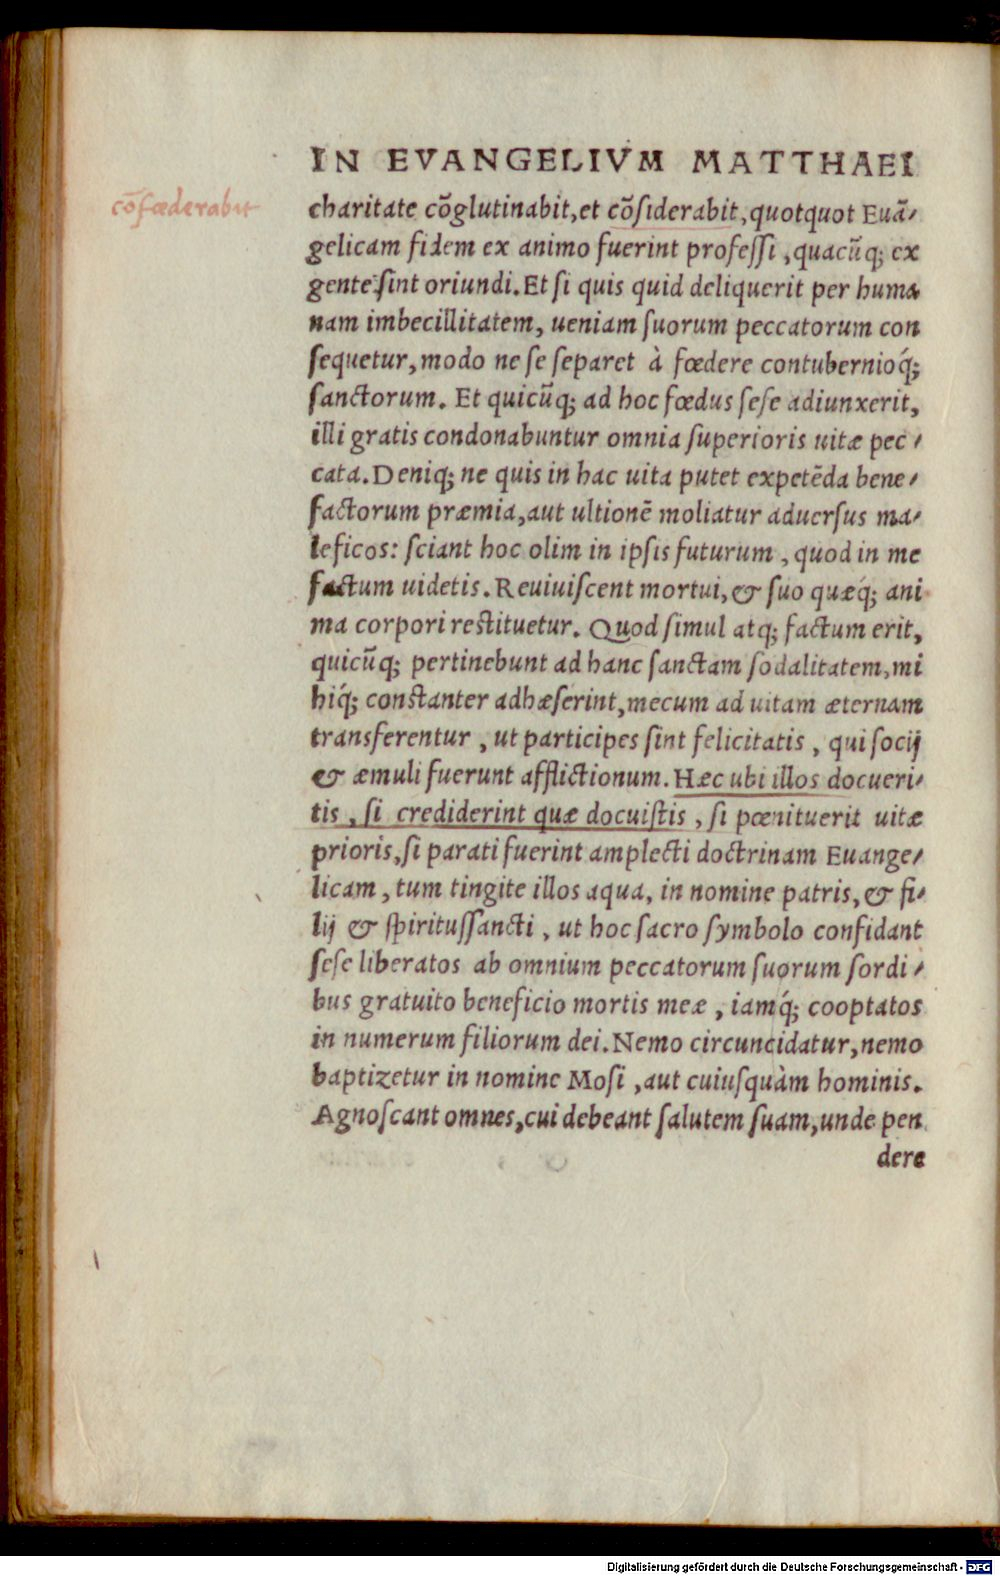 IN EVANGELIVM MATTHAEI
cõfœderabit
charitate cõglutinabit, et cõſiderabit, quotquot Euã⸗
gelicam fidem ex animo fuerint profeſſi, quacũq; ex
gente ſint oriundi. Et ſi quis quid deliquerit per huma
nam imbecillitatem, ueniam ſuorum peccatorum con
ſequetur, modo ne ſe ſeparet à fœdere contubernioq́;
ſanctorum. Et quicũq; ad hoc fœdus ſeſe adiunxerit,
illi gratis condonabuntur omnia ſuperioris uitæ pec⸗
cata. Deniq; ne quis in hac uita putet expetẽda bene⸗
factorum præmia, aut ultionẽ moliatur aduerſus ma⸗
leficos: ſciant hoc olim in ipſis futurum, quod in me
factum uidetis. Reuiuiſcent mortui, & ſuo quæq́; ani
ma corpori reſtituetur. Quod ſimul atq; factum erit,
quicũq; pertinebunt ad hanc ſanctam ſodalitatem, mi
hiq́; conſtanter adhæſerint, mecum ad uitam æternam
transferentur, ut participes ſint felicitatis, qui ſocij
& æmuli fuerunt afflictionum. Hæc ubi illos docueri⸗
tis, ſi crediderint quæ docuiſtis, ſi pœnituerit uitæ
prioris, ſi parati fuerint amplecti doctrinam Euange⸗
licam, tum tingite illos aqua, in nomine patris, & fi⸗
lij & ſpirituſſancti, ut hoc ſacro ſymbolo confidant
ſeſe liberatos ab omnium peccatorum ſuorum ſordi⸗
bus gratuito beneficio mortis meæ, iamq́; cooptatos
in numerum filiorum dei. Nemo circuncidatur, nemo
baptizetur in nomine Moſi, aut cuiuſquàm hominis.
Agnoſcant omnes, cui debeant ſalutem ſuam, unde pen
dere
Digitalisierung gefördert durch die Deutsche Forschungsgemeinschaft - DFG